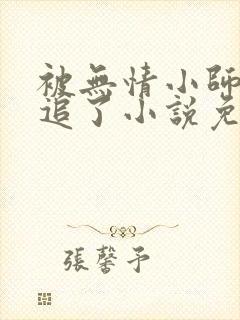 被無情小師
追了小說免
張馨予